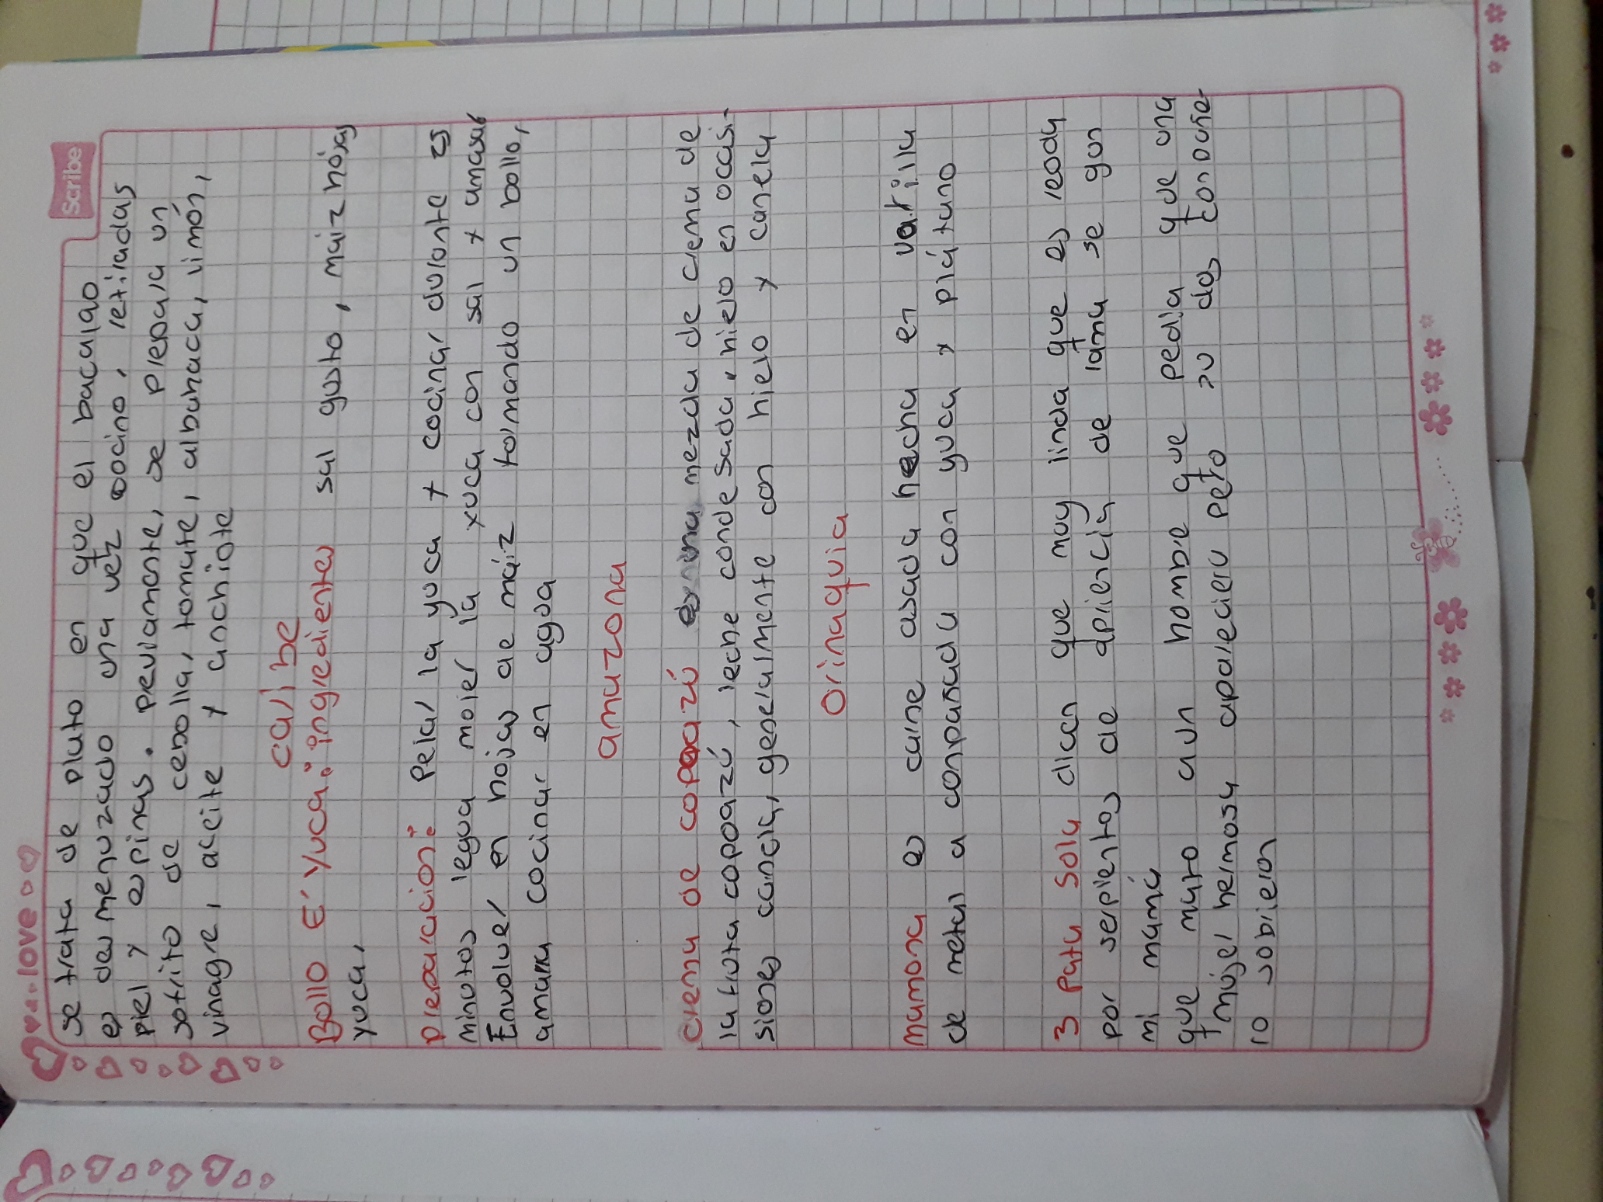 love
Scribe
se trata de plato en que el bacalao
es desmenuzado una vez cocino, retiradas
piel y espinas. previamente, se prepara un
sofrito de cebolla, tomate, albahaca, limón,
vinagre, aceite y anchiote
caribe
Bollo E' Yuca: ingredientes sal gusto, máiz hójas
yuca,
preparación: Pelar la yuca y cocinar durante 25
minutos legua moler la yuca con sal y amasar
Envolver en hojas de máiz formando un bollo,
amarra cocinar en agua
amazona
crema de copoazú mezcla de crema de
la fruta copoazú, leche condesada, hielo en occasi-
siones canela, generalmente con hielo y canela
Orinaquia
mamona es carne asada hecha en varilla
de metal a conpañada con yuca y plátano
3 Pata Sola dicen que muy linda que es
por serpientes de de lama se gun
mi mamá
que mato aun hombre que pedia que una
mujer hermosa apareciera pero su dos
lo sobieron